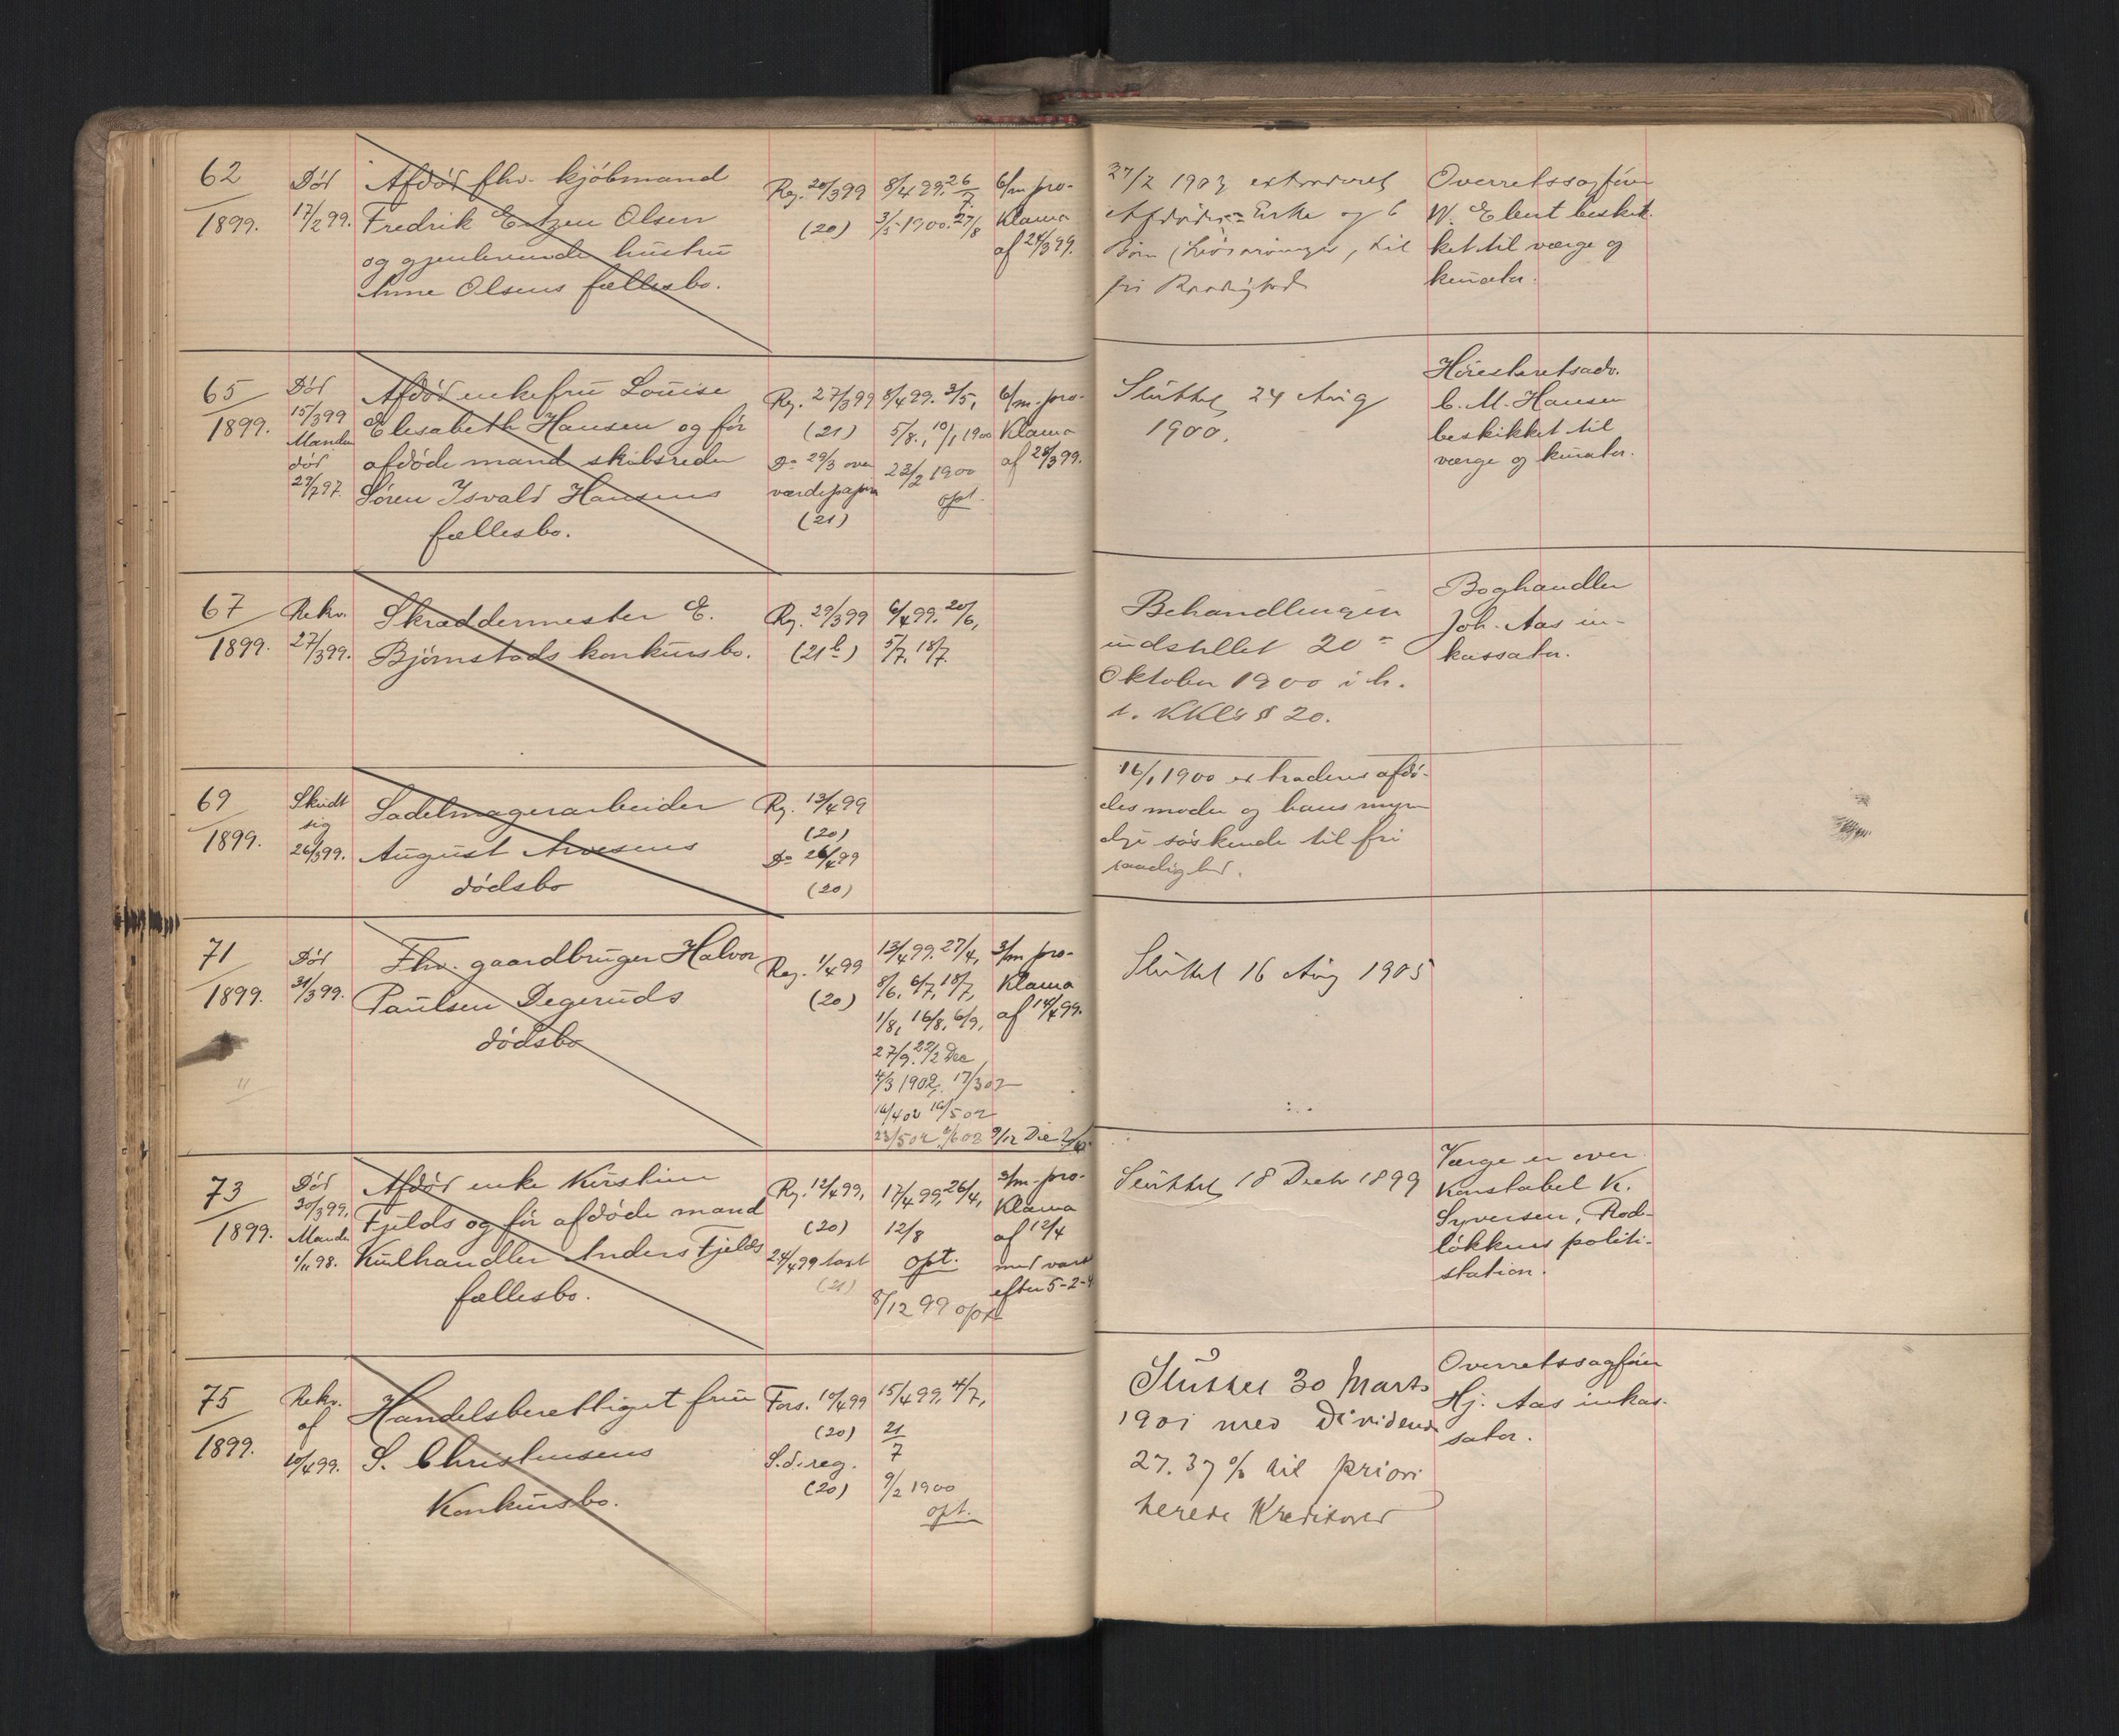 62
1899.
Död
17/2 99.
Afdöd fhv. kjöbmand
Fredrik Olsen
og gjenlevende hustru
Anne Olsens fællesbo.
Reg. 20/3 99
(20)
8/4 99. 26/7.
3/5 1900. 27/8
6/m pro-
klama
af 24/3 99.
27/2 1903 extraderet
Afdödes Enke og 6
Börn, til
fri Raadighed
Overretssagförer
W. beskik-
ket til værge og
kurator.
65
1899.
Död
15/3 99
Manden
död
29/7 97.
Afdöd enkefru Louise
Elisabeth Hansen og før
afdöde mand skibsreder
Sören Isvald Hansens
fællesbo.
Reg. 27/3 99
(21)
Do 29/3 over
værdipapirer
(21)
8/4 99. 3/5,
5/8., 10/1 1900
22/2 1900
opt.
6/m. pro-
klama
af 28/3 99.
Sluttet 24 Aug
1900.
Höiesteretsadv.
C. M. Hansen
beskikket til
værge og kurator.
67
1899.
Rekv.
27/3 99.
Skræddermester E.
Bjørnstads konkursbo.
Reg. 29/3 99
(21 b)
6/4 99. 20/6,
5/7. 18/7.
Behandlingen
indstillet 20
Oktober 1900 i h.
t. KKl's § 20.
Boghandler
Joh. Aas in-
kassator.
69
1899.
Skudt
sig
26/3 99.
Sadelmagerarbeider
August Arvesens
dödsbo
Reg. 13/4 99
(20)
Do 26/4 99
(20)
16/1 1900 extraderes afdö-
des moder og hans myn
dige söskende til fri
raadighed.
71
1899.
Död
31/3 99.
Fhv. gaardbruger Halvor
Paulsen Degeruds
dödsbo
Reg. 1/4 99
(20)
13/4 99. 27/4,
8/6, 6/7, 18/7,
1/8, 16/8, 6/9,
27/9. 22/2 Dec
4/3 1902, 17/3 02
16/4 02 16/5 02
23/5 02 9/12
3/m pro-
klama
af 14/4 99.
Sluttet 16 Aug 1905
73
1899.
Död
30/3 99,
Manden
1/11 98.
Afdöd enke Kirstine
Fjelds og för afdöde mand
Kulhandler Anders Fjelds
fællesbo.
Reg. 12/4 99,
(20)
24/4 99 taxt
(21)
17/4 99, 26/4,
12/8
opt.
8/12 99 opt
3/m. pro-
klama
af 12/4
med vars
efter 5-2-4
Sluttet 18 Decbr 1899
Værge er over
konstabel K.
Syversen, Rod-
lökkens politi-
station.
75
1899.
Rekv.
af
10/4 99.
Handelsberettiget frue
S. Christensens
Konkursbo.
Fors. 10/4 99
(20)
S. d. reg.
(20)
15/4 99, 4/7,
21/7
9/2 1900
opt.
Sluttet 30 Marts
1901 med Dividende
27.37 % til priori
terede Kreditorer
Overretssagförer
Hj. Aas inkas-
sator.